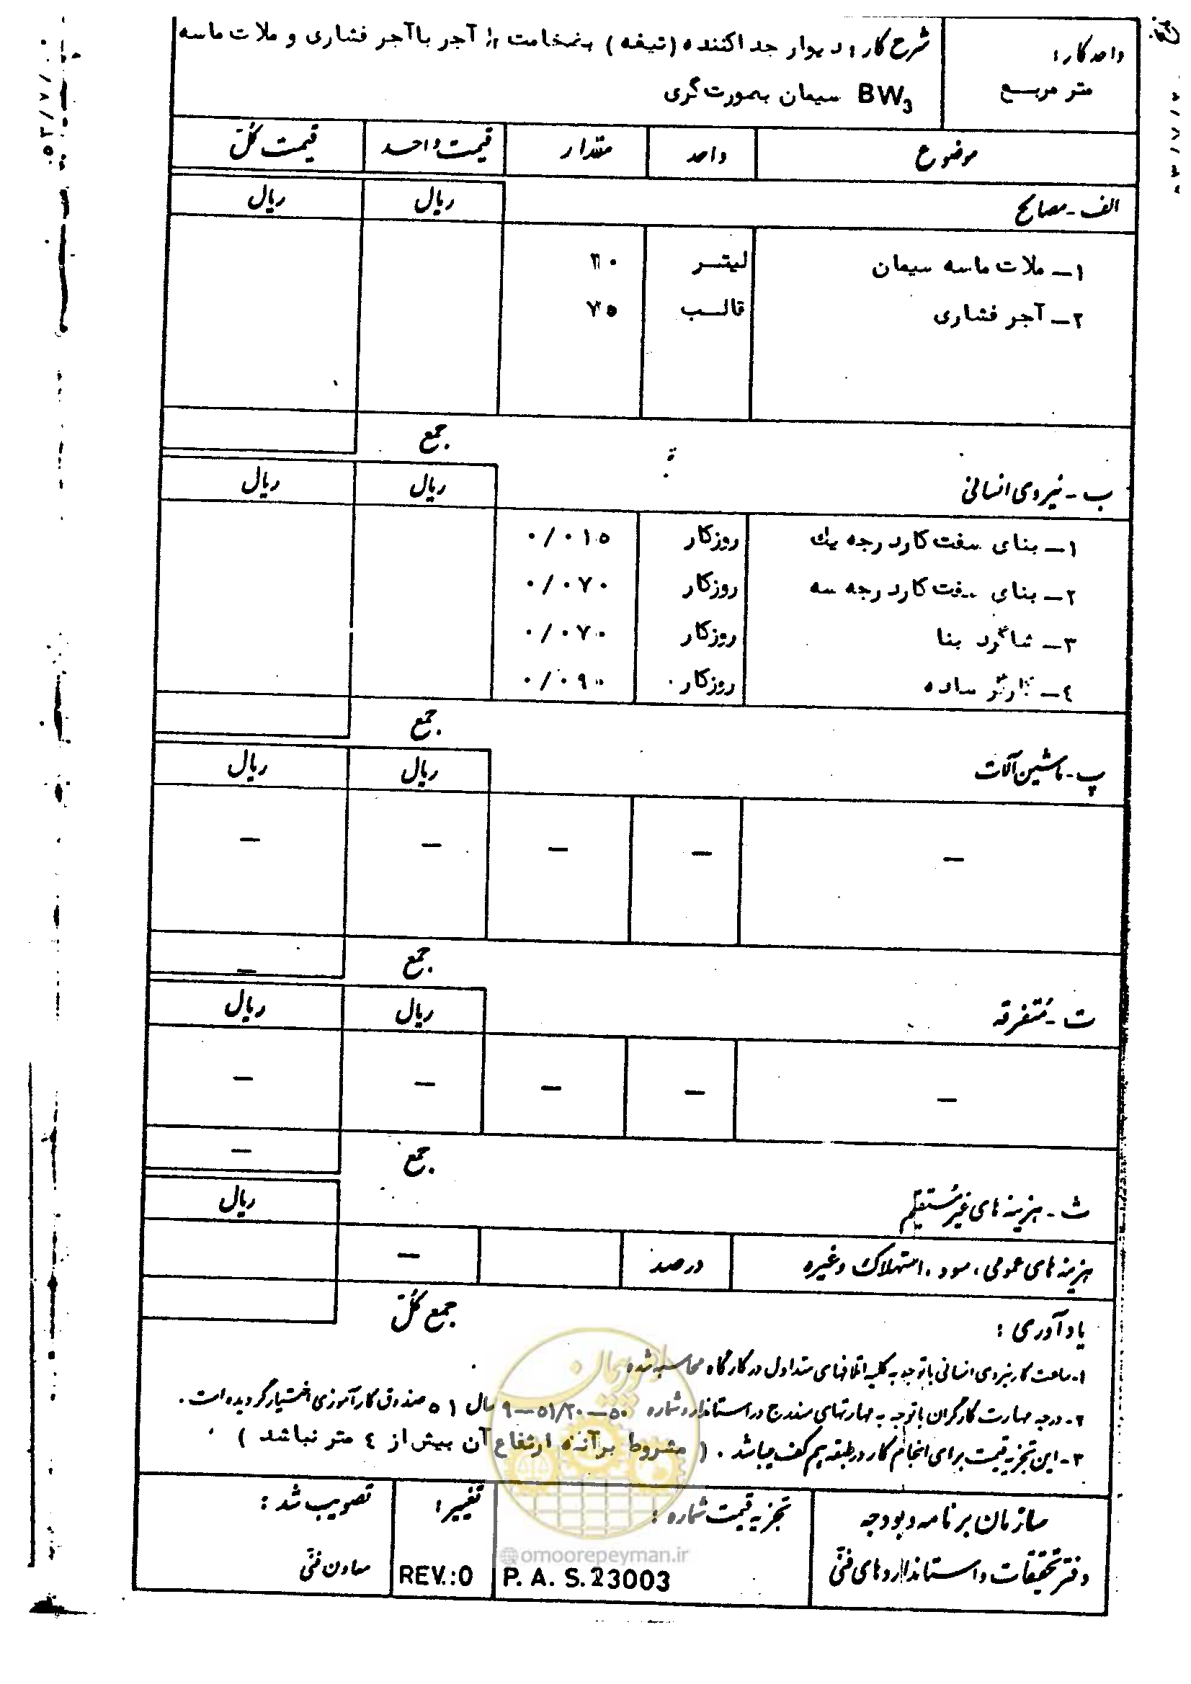 واحد کار :
متر مربع
شرح کار : دیوار جداکننده (تیغه) بضخامت ½ آجر با آجر فشاری و ملات ماسه
سیمان بصورت گری BW3
موضوع واحد مقدار قیمت واحد قیمت کل
الف - مصالح ریال ریال
۱- ملات ماسه سیمان لیتر ۲۰
۲- آجر فشاری قالب ۷۵
جمع
ب - نیروی انسانی ریال ریال
۱- بنای سفت کار درجه یک روزکار ۰/۰۱۵
۲- بنای سفت کار درجه سه روزکار ۰/۰۷۰
۳- شاگرد بنا روزکار ۰/۰۷۰
٤- کارگر ساده روزکار ۰/۰۹۰
جمع
پ - ماشین آلات ریال ریال
– – – – –
جمع –
ت - متفرقه ریال ریال
– – – – –
جمع –
ث - هزینه های غیر مستقیم ریال
هزینه های عمومی ، سود ، استهلاک و غیره درصد –
جمع کل
یادآوری :
۱- ساعت کار نیروی انسانی با توجه به کلیه اتلافهای متداول در کارگاه محاسبه شده
۲- درجه مهارت کارگران با توجه به مهارتهای مندرج در استاندارد شماره ۵۰-۵۱/۲۰-۹ سال ۵۱ صندوق کارآموزی اختیار گردیده است .
۳- این تجزیه قیمت برای انجام کار در طبقه هم کف میباشد . ( مشروط برآنکه ارتفاع آن بیش از ٤ متر نباشد )
سازمان برنامه و بودجه
دفتر تحقیقات و استانداردهای فنی
تجزیه قیمت شماره :
P. A. S.23003
تغییر :
REV.:0
تصویب شد :
معاون فنی
امور پیمان
@omoorepeyman.ir